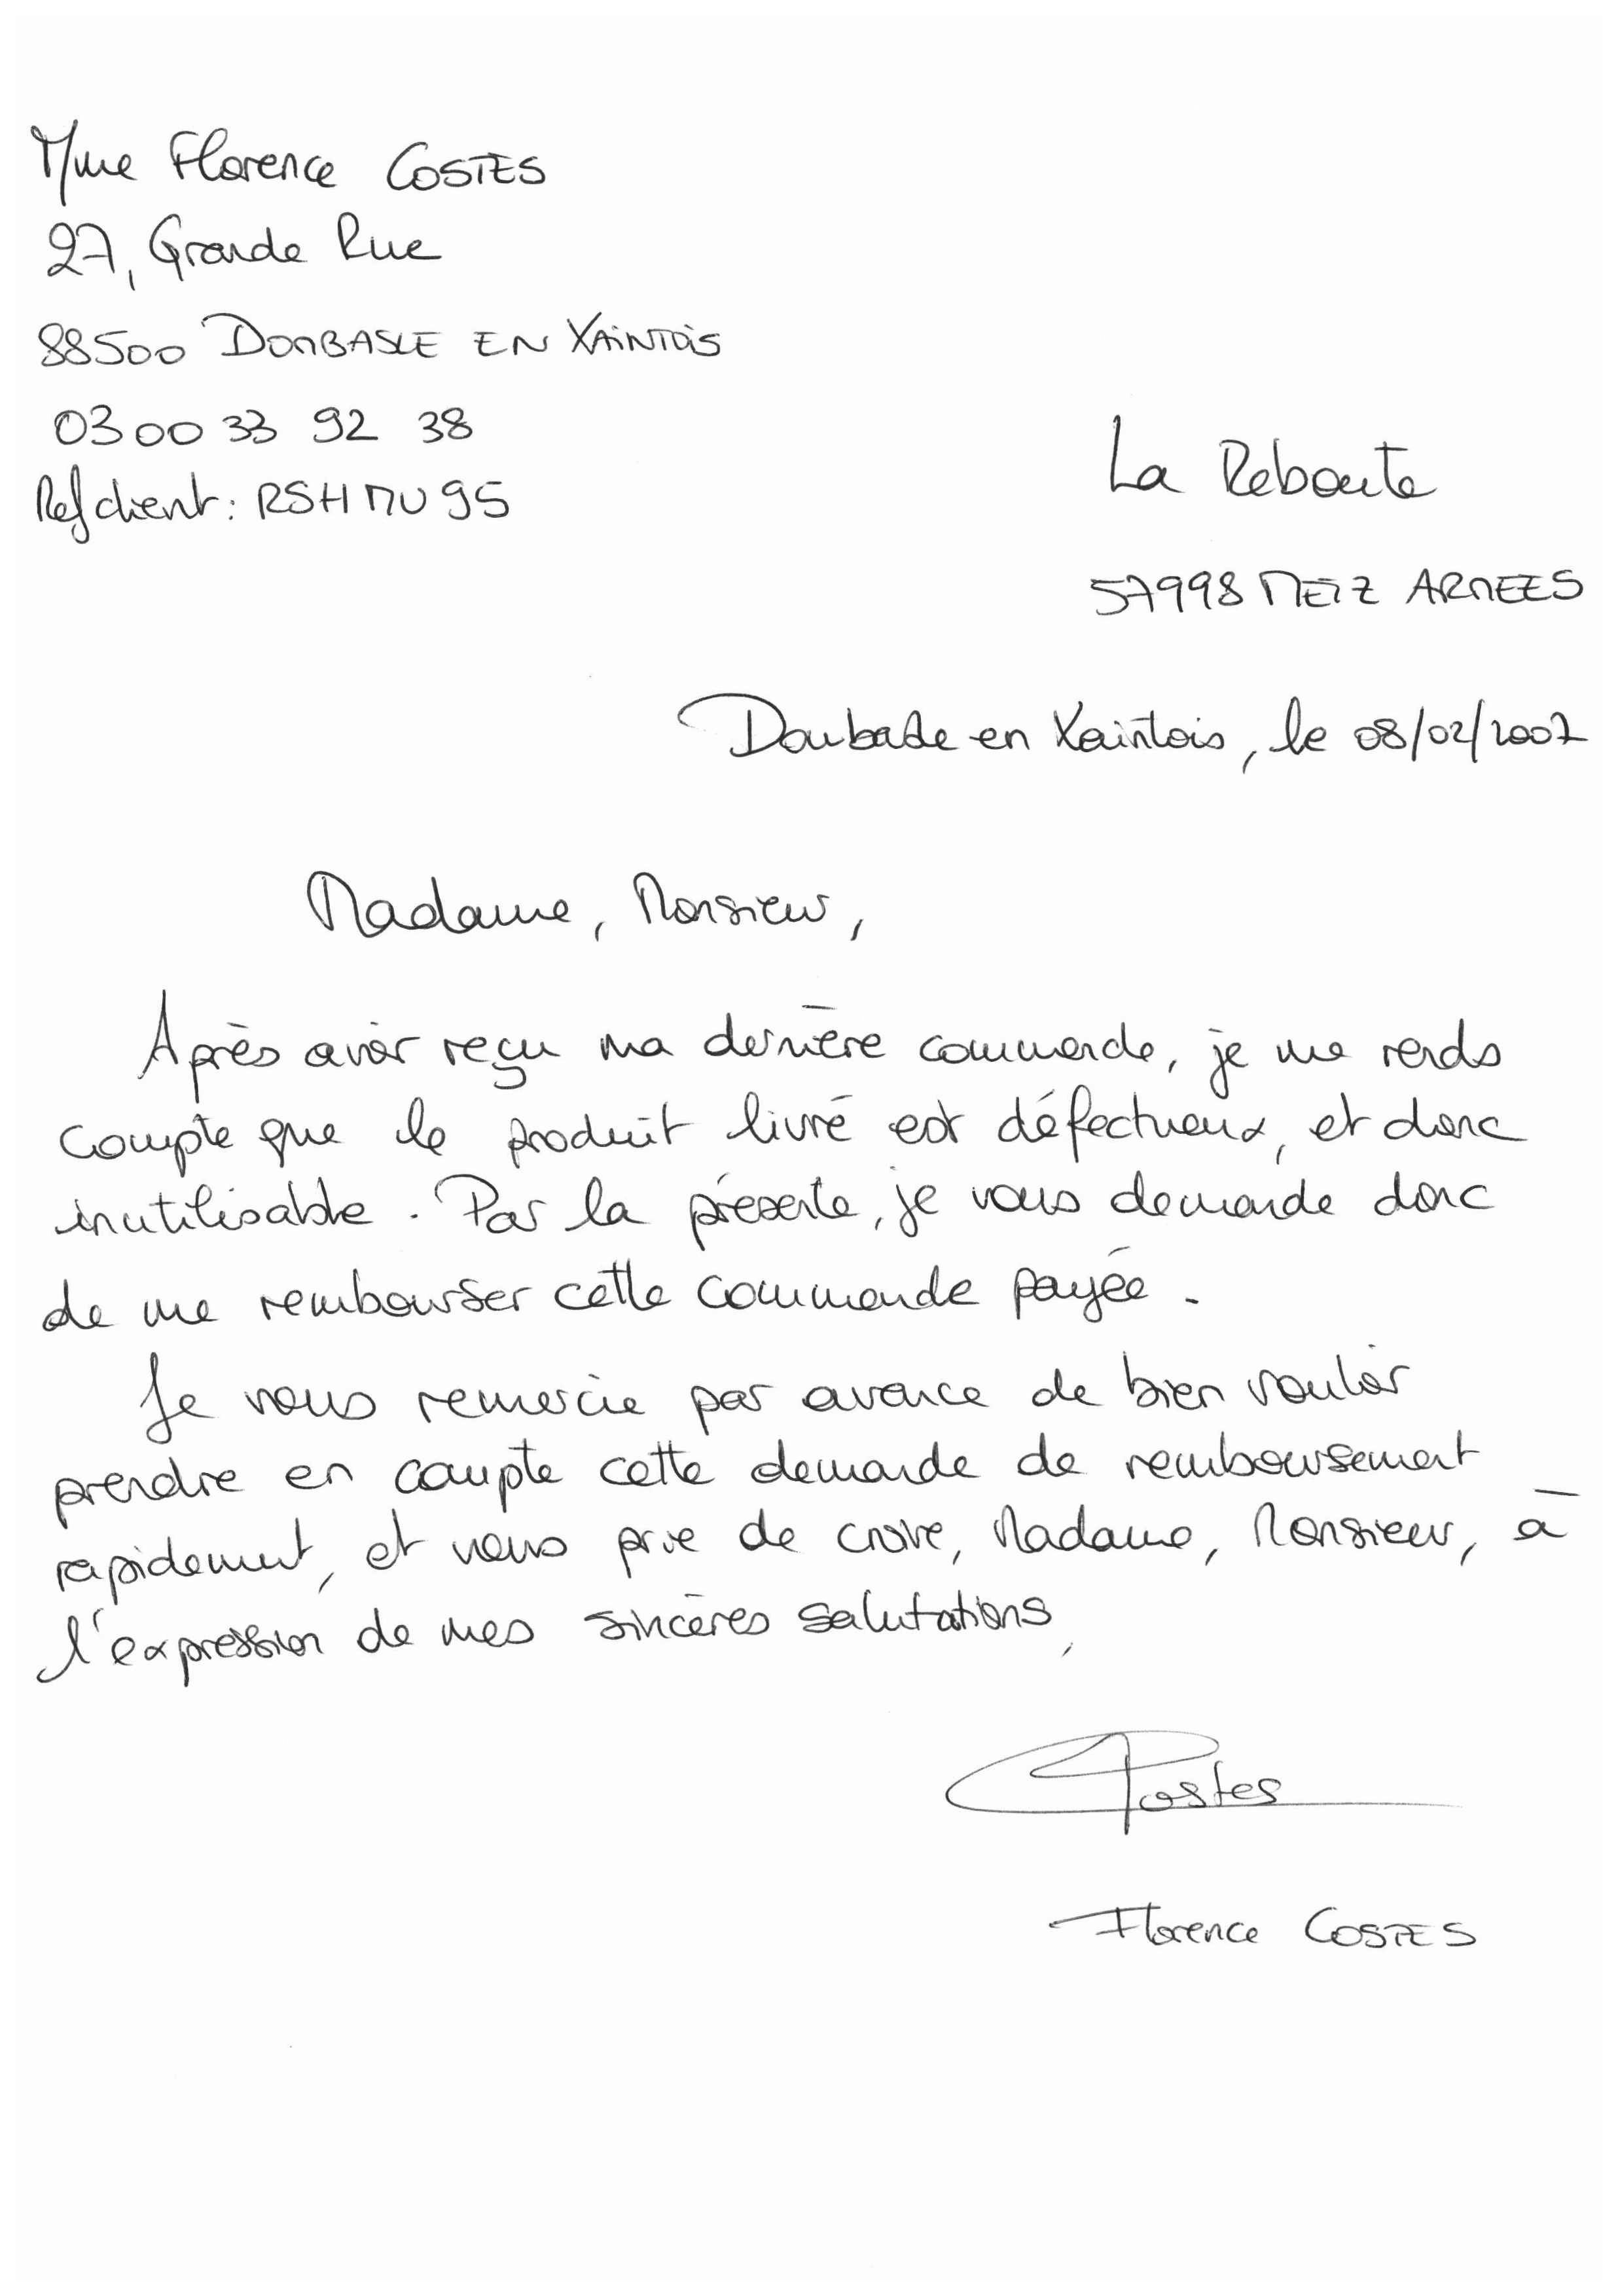 Mme Florence COSTES
27, Grande Rue
88500 DOMBASLE EN XAINTOIS
03 00 33 92 38
Ref client : RSHMU95
La Reboute
57998 METZ ARMEES
Dombasle en Xaintois, le 08/02/2007
Madame, Monsieur,
Après avoir reçu ma dernière commande, je me rends
compte que le produit livré est défectueux, et donc
inutilisable. Par la présente, je vous demande donc
de me rembourser cette commande payée.
Je vous remercie par avance de bien vouloir
prendre en compte cette demande de remboursement
rapidement, et vous prie de croire, Madame, Monsieur, à
l'expression de mes sincères salutations,
Costes
Florence COSTES